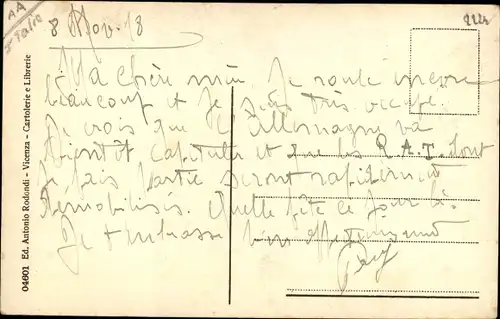 AA
Italie
2224
8 Nov. 18
Ma chère mimi, Je roule encore
beaucoup et je suis très occupé.
Je crois que l'Allemagne va
bientôt capituler et que les R.A.T. dont
je fais partie seront rapidement
démobilisés. Quelle fête ce jour là.
Je t'embrasse bien affectueusement
04601 Ed. Antonio Rodondi - Vicenza - Cartolerie e Librerie